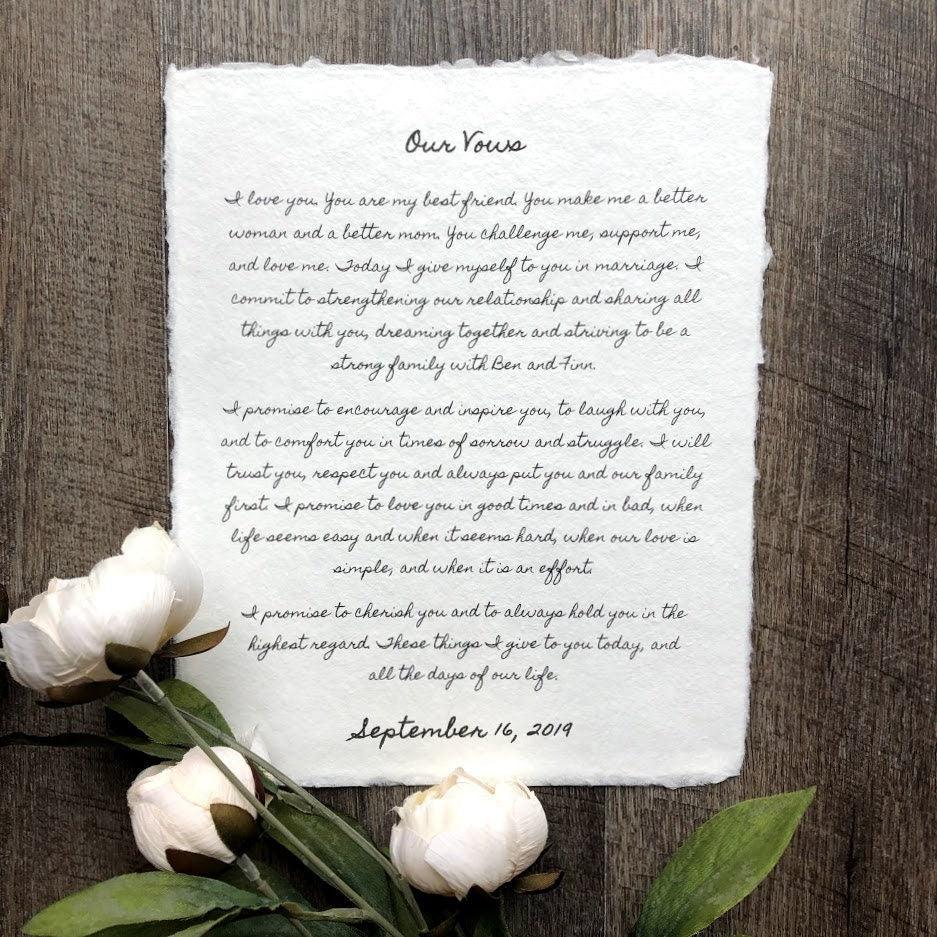 Our Vows
I love you. You are my best friend. You make me a better
woman and a better mom. You challenge me, support me,
and love me. Today I give myself to you in marriage. I
commit to strengthening our relationship and sharing all
things with you, dreaming together and striving to be a
strong family with Ben and Finn.
I promise to encourage and inspire you, to laugh with you,
and to comfort you in times of sorrow and struggle. I will
trust you, respect you and always put you and our family
first. I promise to love you in good times and in bad, when
life seems easy and when it seems hard, when our love is
simple, and when it is an effort.
I promise to cherish you and to always hold you in the
highest regard. These things I give to you today, and
all the days of our life.
September 16, 2019